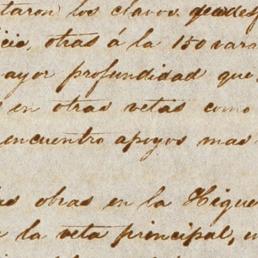 taron los clavos
icie, otras á la 150 vara
ayor profundidad que
s en otras vetas como
encuentro apoyos mas
as obras en la Higue
la veta principal, e